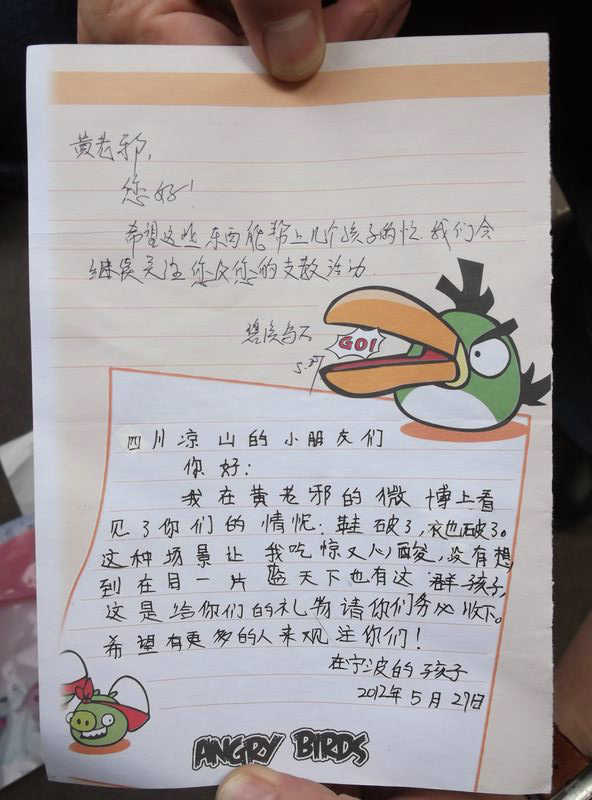 黄老邪,
您好!
希望这些东西能帮上几个孩子的忙 我们会
继续关注您及您的支教活动
5.27
GO!
四川凉山的小朋友们
你好:
我在黄老邪的微博上看
见了你们的情忧:鞋破了,衣也破了。
这种场景让我吃惊又心酸,没有想
到在同一片蓝天下也有这群孩子,
这是给你们的礼物请你们务必收下。
希望有更多的人来观注你们!
在宁波的孩子
2012年5月27日
ANGRY BIRDS